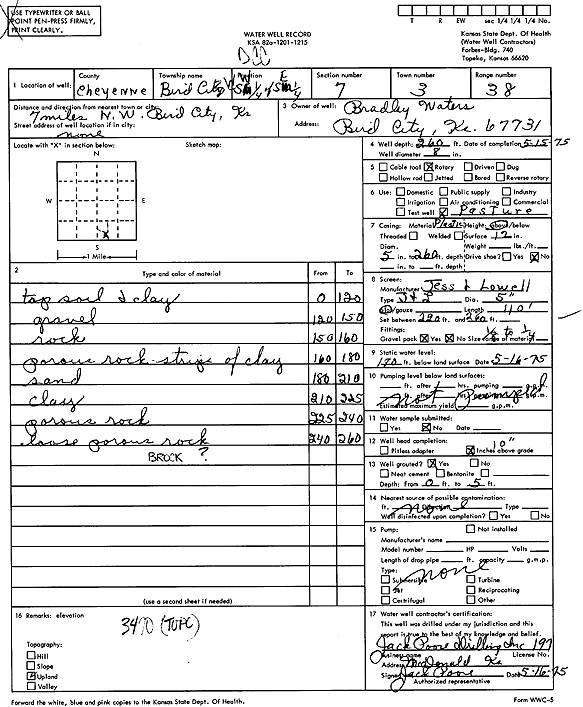 USE TYPEWRITER OR BALL
POINT PEN-PRESS FIRMLY,
PRINT CLEARLY.
T R EW sec 1/4 1/4 1/4 No.
WATER WELL RECORD
KSA 82a-1201-1215
Kansas State Dept. Of Health
(Water Well Contractors)
Forbes-Bldg. 740
Topeka, Kansas 66620
1 Location of well:
County
Cheyenne
Township name
Bird City
Section number
7
Town number
3
Range number
38
Distance and direction from nearest town or city:
7 miles N.W. Bird City, Ks
Street address of well location if in city:
none
3 Owner of well: Bradley Waters
Address: Bird City, Ks. 67731
Locate with "X" in section below:
Sketch map:
N
W E
X
S
1 Mile
4 Well depth: 260 ft. Date of completion 5-15-75
Well diameter 8 in.
5 Cable tool X Rotary Driven Dug
Hollow rod Jetted Bored Reverse rotary
6 Use: Domestic Public supply Industry
Irrigation Air conditioning Commercial
Test well Pasture
7 Casing: Material Plastic Height: above/below
Threaded Welded Surface 12 in.
Diam. Weight lbs./ft.
5 in. to 260 ft. depth Drive shoe? Yes X No
in. to ft. depth
2 Type and color of material From To
top soil & clay 0 120
gravel 120 150
rock 150 160
porous rock strips of clay 160 180
sand 180 210
clay 210 225
porous rock 225 240
loose porous rock 240 260
BROCK ?
(use a second sheet if needed)
8 Screen:
Manufacturer Jess & Lowell
Type J & L Dia. 5"
slot/gauze Length 40'
Set between 220 ft. and 260 ft.
Fittings:
Gravel pack X Yes No Size range of material 1/8 to 1/4
9 Static water level:
170 ft. below land surface Date 5-16-75
10 Pumping level below land surfaces:
ft. after hrs. pumping g.p.m.
ft. after hrs. pumping g.p.m.
not pumped
Estimated maximum yield g.p.m.
11 Water sample submitted:
Yes X No Date
12 Well head completion: 10"
Pitless adapter X Inches above grade
13 Well grouted? X Yes No
Neat cement Bentonite
Depth: From 0 ft. to 5 ft.
14 Nearest source of possible contamination:
ft. Type
Well disinfected upon completion? Yes No
15 Pump: Not installed
Manufacturer's name
Model number HP Volts
Length of drop pipe ft. capacity g.m.p.
Type: none
Submersible Turbine
Jet Reciprocating
Certrifugal Other
16 Remarks: elevation
3470 (TOPO)
Topography:
Hill
Slope
X Upland
Valley
17 Water well contractor's certification:
This well was drilled under my jurisdiction and this
report is true to the best of my knowledge and belief.
Jack Poore Drilling Inc 197
Business name License No.
Address McDonald Ks
Signed Jack Poore Date 5-16-75
Authorized representative
Forward the white, blue and pink copies to the Kansas State Dept. Of Health.
Form WWC-5